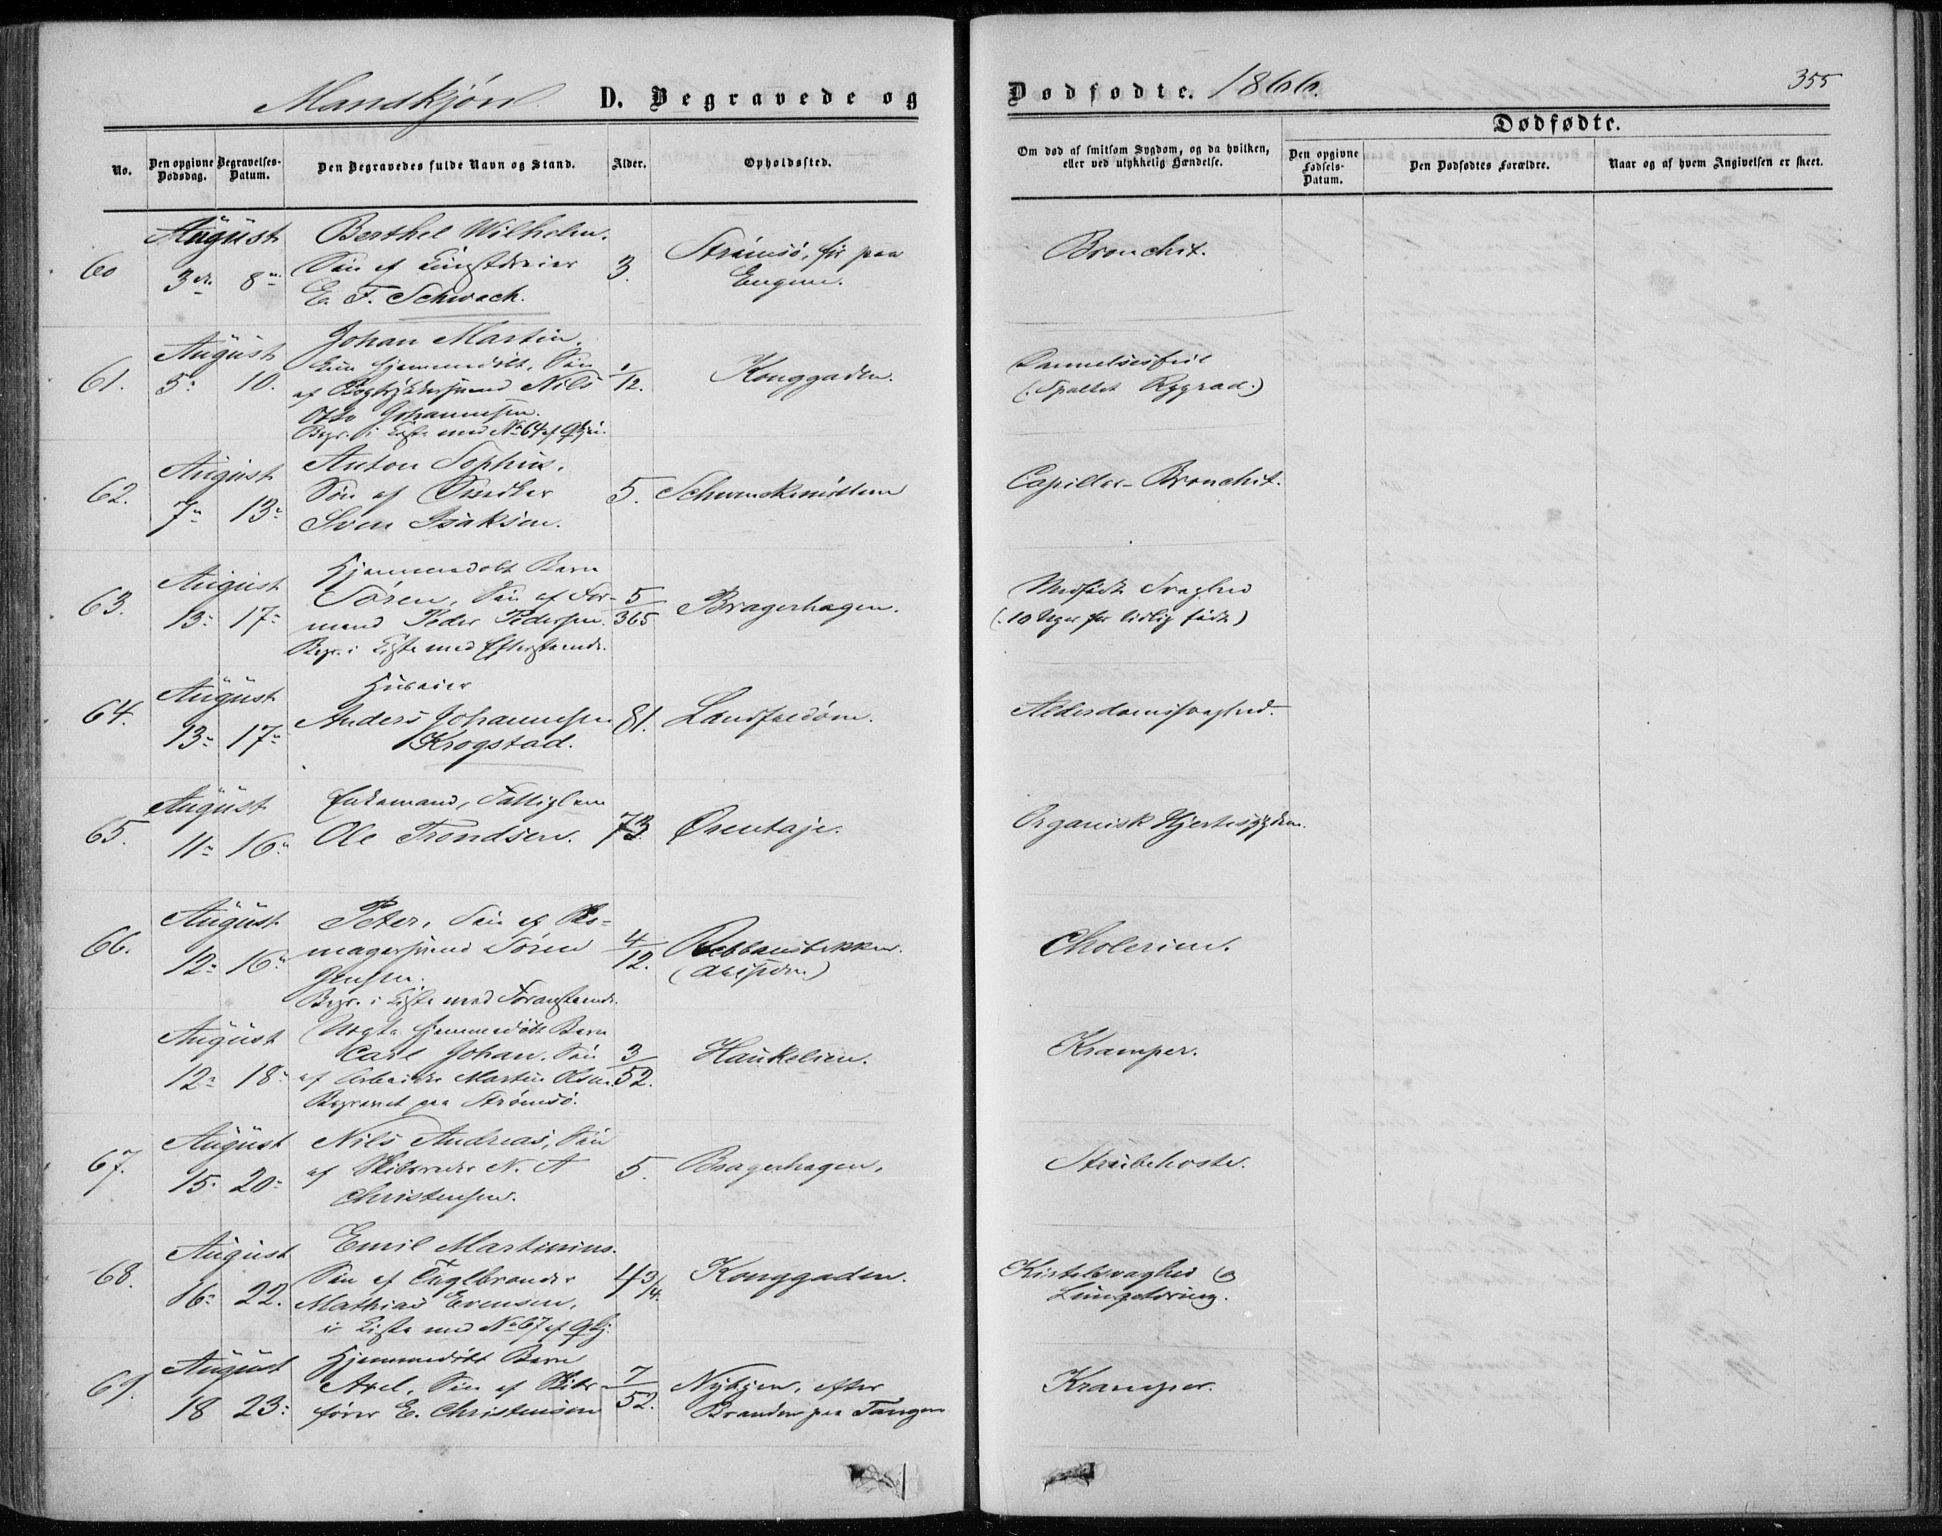 Mandkjøn D. Begravede og Dødfødte. 1866. 355
No. Den opgivne Dødsdag. Begravelses-Datum. Den Begravedes fulde Navn og Stand. Alder. Opholdssted.
Om død af smitsom Sygdom, og da hvilken, eller ved ulykkelig Hændelse.
Dødfødte.
Den opgivne Fødsels-Datum. Den Dødfødtes Forældre. Naar og af hvem Angivelsen er skeet.
August Berthel Wilhelm.
60 3die 8de Søn af 3. Strømsø, før paa Bronchit.
E. F. Schwach. Engene.
Johan Martin.
August hjemmedøbt, Søn
61. 5. 10. af Nils 1/12. Konggaden. Dannelsesfeil
Otto Johannesen. (: Spaltet Rygrad :)
Begr. i Kiste med No 64 af Qkj.
August Anton Sophus,
62. 7de 13. Søn af Snedker 5. Capillær-Bronchit.
Sven Isaksen.
Hjemmedøbt Barn
August Søren, Søn af For-
63. 13. 17. mand Peder Pedersen. 5/365 Bragerhagen. Medfødt Svaghed
(: 10 Uger for tidlig født)
Begr. i Kiste med Efterstaaende.
August Huseier
64. 13. 17. Anders Johannesen 81. Landfaldøen. Alderdomssvaghed.
Krogstad.
August Enkemand, Fattiglem
65. 11. 16. Ole Trondsen. 73. Ørentaje. Organisk Hjertesygdom.
August Peter, Søn af Sko-
66. 12. 16. magersvend Søren 4/12. Cholerine.
Jensen.
Begr. i Kiste med Foranstaaende.
August hjemmedøbt Barn
Carl Johan. Søn 3/52. Haukelien. Kramper.
12. 18. af Arbeider Martin Olsen.
Begravet paa Strømsø.
August Nils Andreas, Søn
67. 15. 20. af Skibsreder N. A 5. Bragerhagen. Strubehoste.
Christensen.
August Emil Martinius.
68. 16. 22. Søn af Teglbrænder 4 3/4. Konggaden. Kirtelsvaghed og
Mathias Evensen, Lungetæring.
i Kiste med No 67 af Qkj.
August Hjemmedøbt Barn
69. 18 23. Axel, Søn af Skibs- 7/52. Nybyen, efter Kramper.
fører E. Christensen Branden paa Tangen